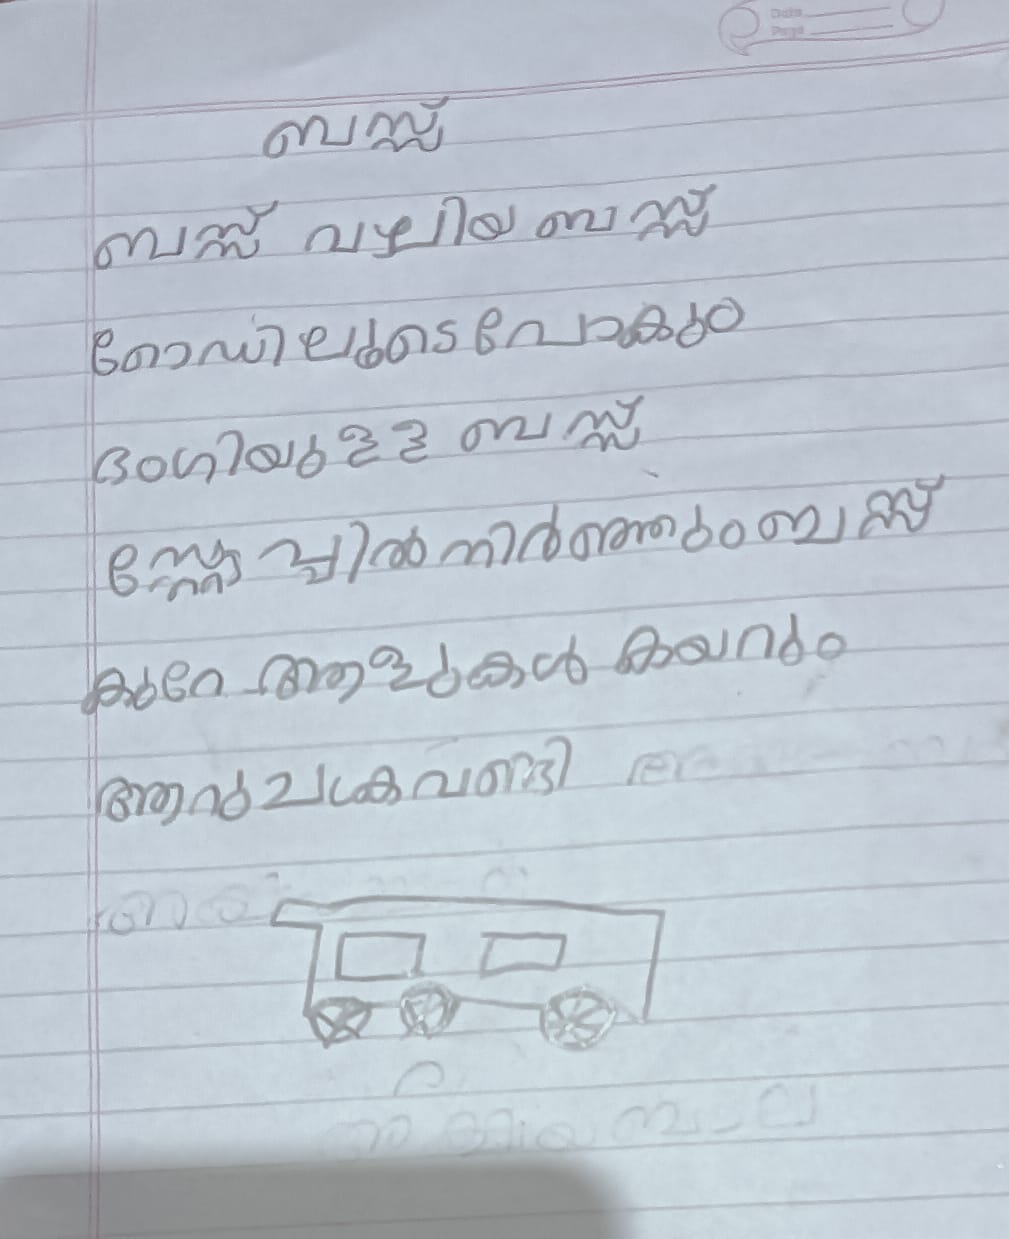 Date
Page
ബസ്സ്
ബസ്സ് വഴിയ ബസ്സ്
റോഡിലുടെ പോകും
ഭംഗിയുള്ള ബസ്സ്
സ്റ്റോപ്പിൽ നിർത്തും ബസ്സ്
കുറേ ആളുകൾ കയറും
ആറു ചക്രവണ്ടി